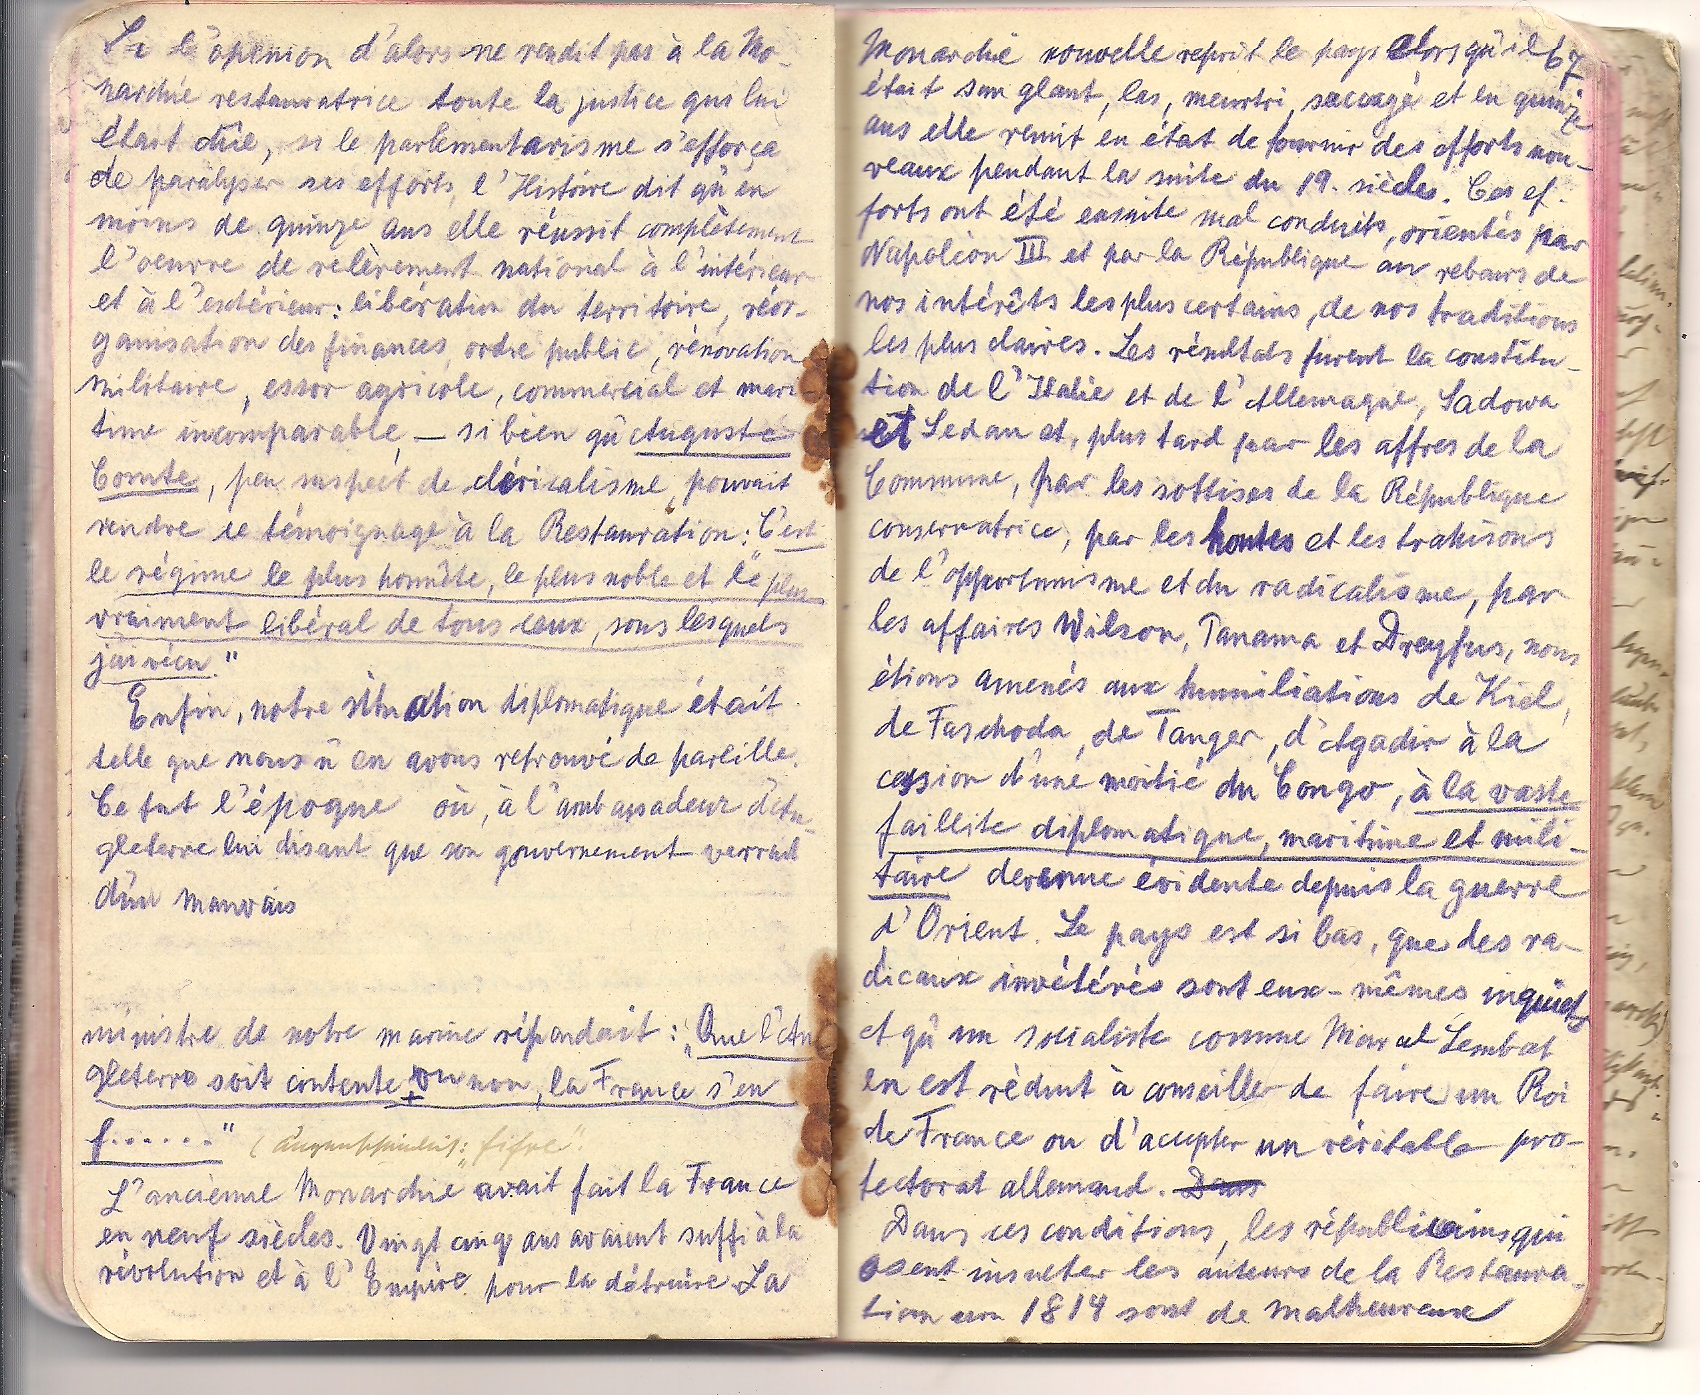 Si l'opinion d'alors ne rendit pas à la Mo-
narchie restauratrice toute la justice qui lui
était dûe, si le parlementarisme s'efforça
de paralyser ses efforts, l'Histoire dit qu'en
moins de quinze ans elle réussit complètement
l'oeuvre de relèvement national à l'intérieur
et à l'extérieur: libération du territoire, réor-
ganisation des finances, ordre public, rénovation
militaire, essor agricole, commercial et mari
time incomparable, — si bien qu'Auguste
Comte, peu suspect de cléricalisme, pouvait
rendre ce témoignage à la Restauration: C'est
le régime le plus honnête, le plus noble et le "plus
vraiment libéral de tous ceux, sous lesquels
j'ai vécu."
Enfin, notre situation diplomatique était
telle que nous n'en avons retrouvé de pareille.
Ce fut l'époque où, à l'ambassadeur d'An-
gleterre lui disant que son gouvernement verrait
d'un mauvais
ministre de notre marine répondait: "Que l'An
gleterre soit contente ou non, la France s'en
f......"
L'ancienne Monarchie avait fait la France
en neuf siècles. Vingt cinq ans avaient suffi à la
révolution et à l'Empire pour la détruire. La
Monarchie nouvelle reprit le pays alors qu'il 67
était sanglant, las, meurtri, saccagé et en quinze
ans elle remit en état de fournir des efforts nou-
veaux pendant la suite du 19. siècles. Ces ef-
forts ont été ensuite mal conduits, orientés par
Napoléon III et par la République au rebours de
nos intérêts les plus certains, de nos traditions
les plus claires. Les résultats furent la constitu-
tion de l'Italie et de l'Allemagne, Sadowa
et Sedan et, plus tard par les affres de la
Commune, par les sottises de la République
conservatrice, par les hontes et les trahisons
de l'opportunisme et du radicalisme, par
les affaires Wilson, Panama et Dreyfus, nous
étions amenés aux humiliations de Kiel,
de Faschoda, de Tanger, d'Agadir à la
cession d'une moitié du Congo, à la vaste
faillite diplomatique, maritime et mili-
taire devenue évidente depuis la guerre
d'Orient. Le pays est si bas, que des ra-
dicaux invétérés sont eux-mêmes inquiets
et qu'un socialiste comme Marcel Sembat
en est réduit à conseiller de faire un Roi
de France ou d'accepter un véritable pro-
tectorat allemand. Dans
Dans ces conditions, les républicains qui
osent insulter les auteurs de la Restaura-
tion un 1814 sont de malheureux